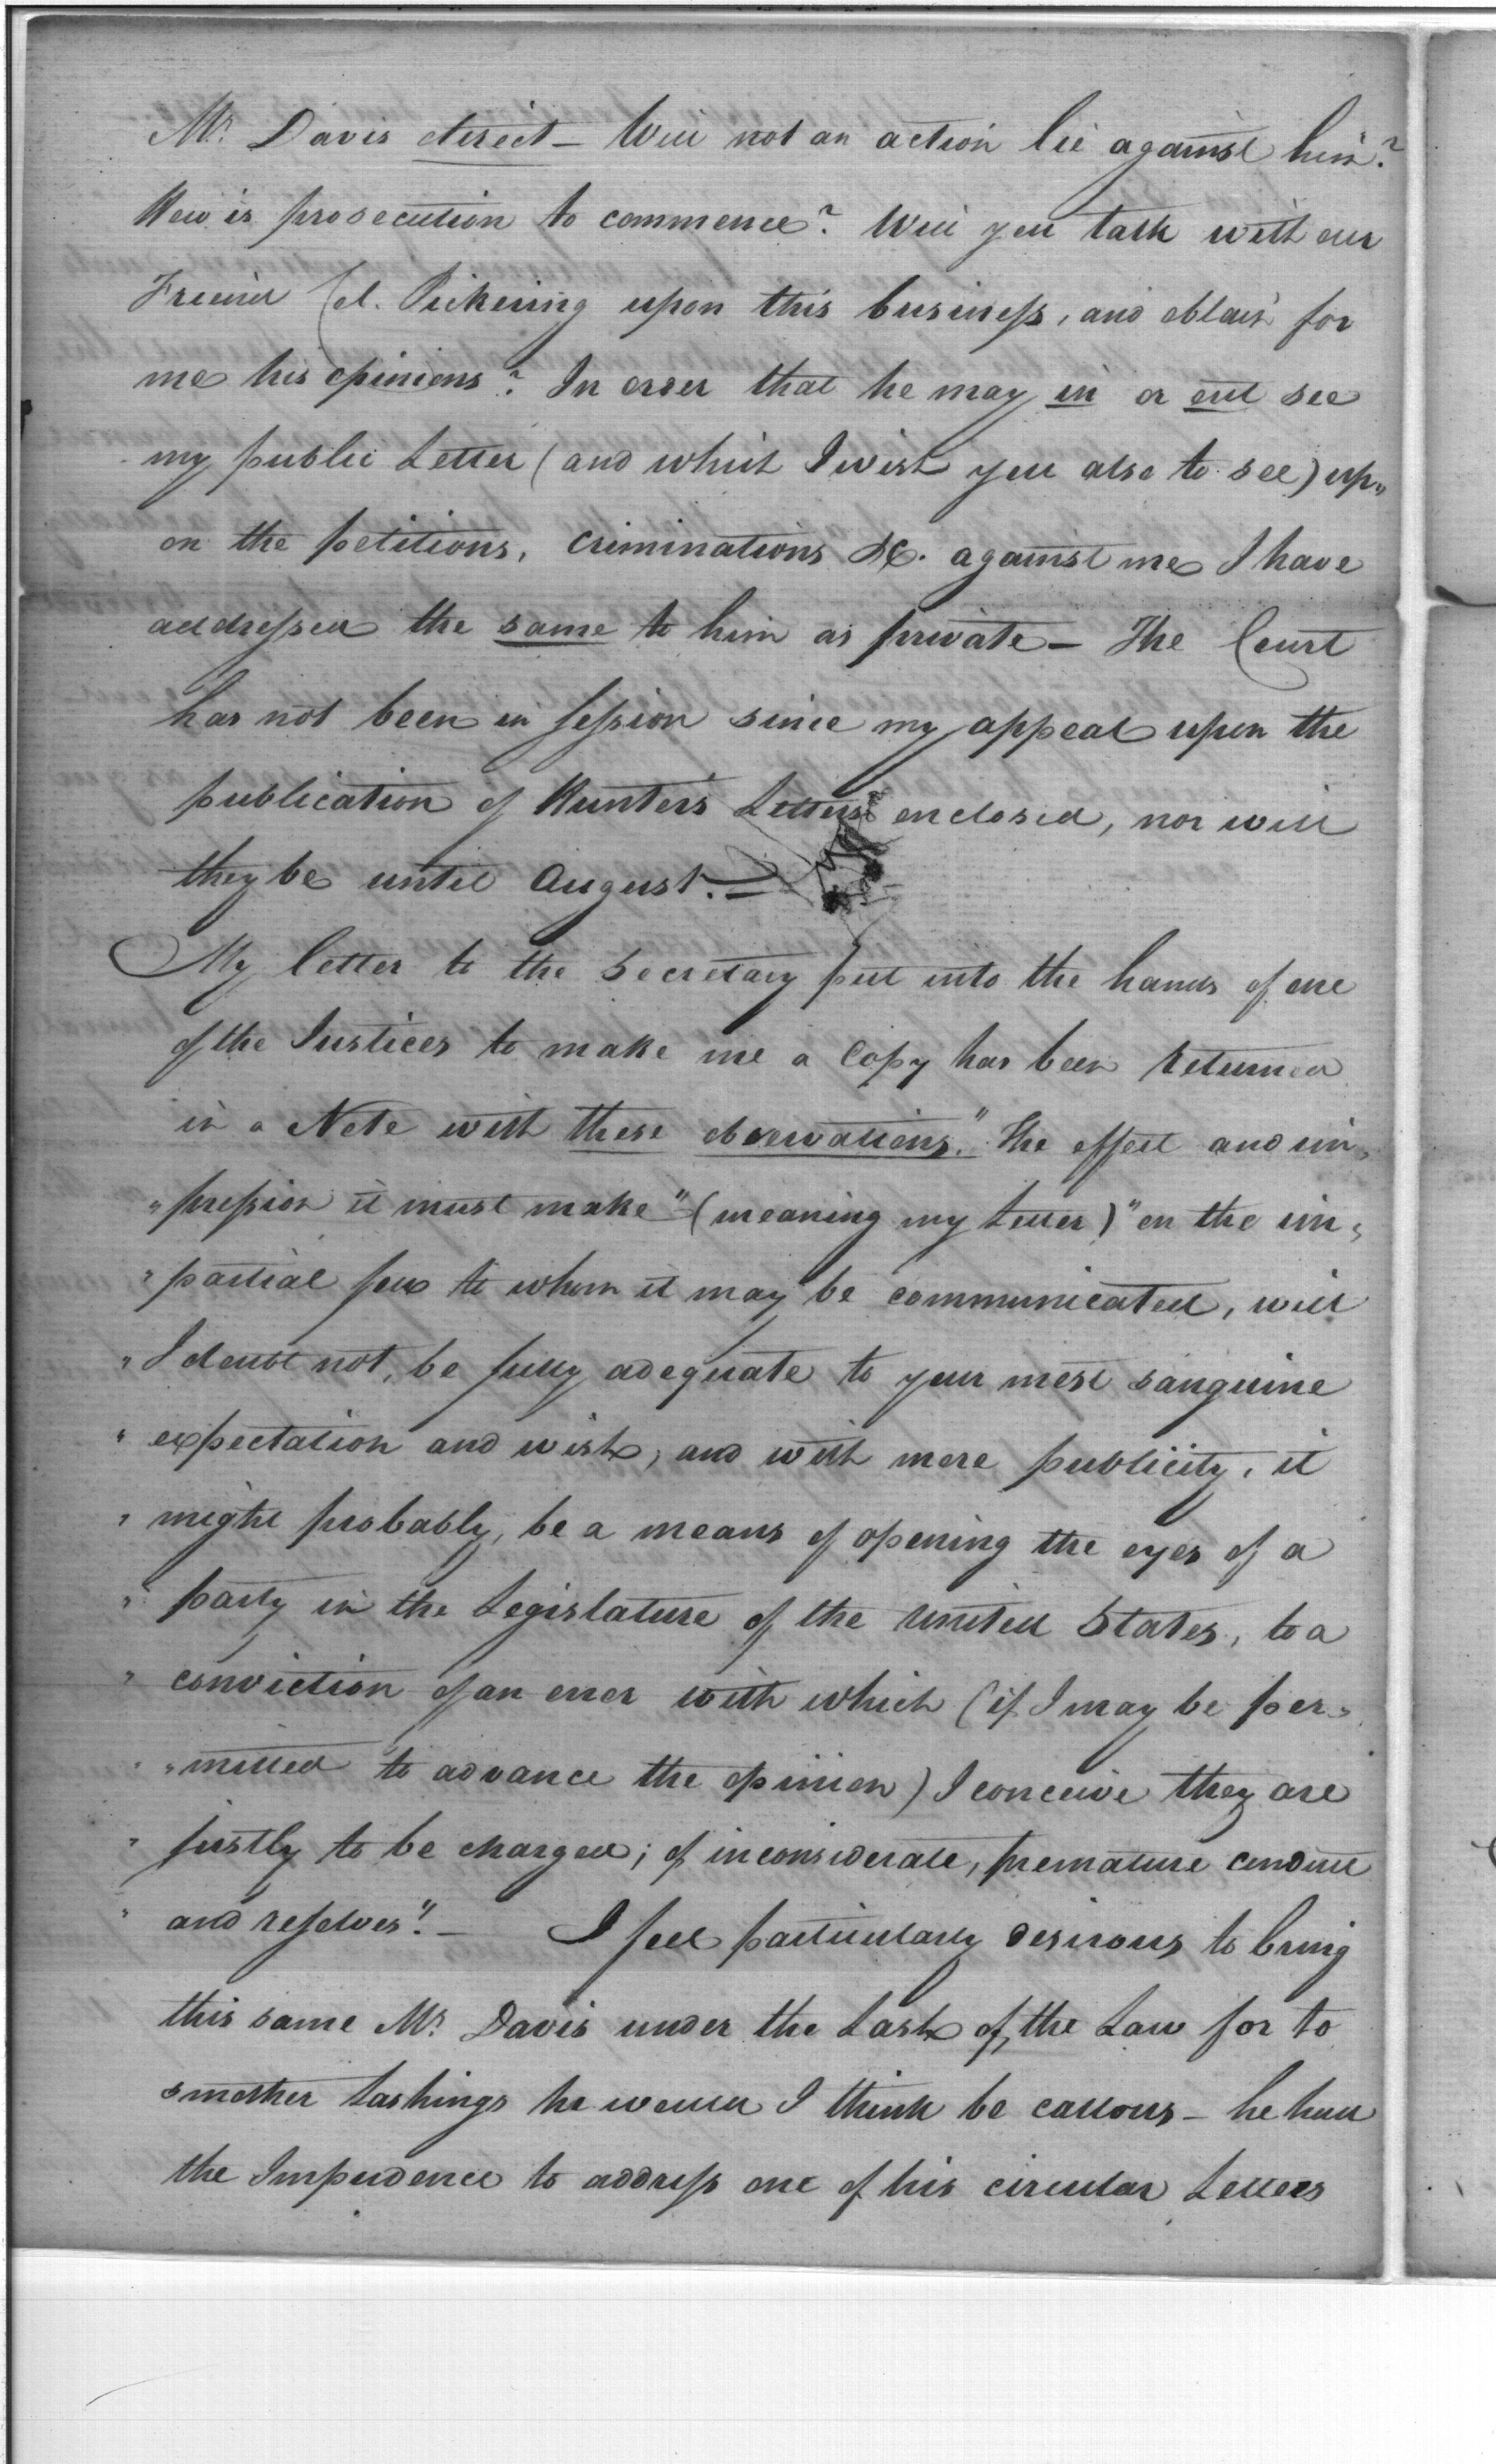 Mr. Davis direct – Will not an action lie against him?
How is prosecution to commence? Will you talk with our
Friend Col. Pickering upon this business, and obtain for
me his opinions? In order that he may in or out see
my public Letter (and which I wish you also to see) up„
on the petitions, criminations &c. against me I have
addressed the same to him as private – The Court
has not been in session since my appeal upon the
publication of Hunter's Letters enclosed, nor will
they be until August. =
My letter to the Secretary put into the hands of one
of the Justices to make me a Copy has been returned
in a Note with these observations." The effect and im„
"pression it must make" (meaning my Letter) "on the im„
"partial few to whom it may be communicated, will
"I doubt not, be fully adequate to your most sanguine
"expectation and wish, and with more publicity, it
"might probably, be a means of opening the eyes of a
"party in the Legislature of the United States, to a
"conviction of an error with which (if I may be per„
"mitted to advance the opinion) I conceive they are
"justly to be charged; of inconsiderate, premature conduct
"and resolves". – I feel particularly desirous to bring
this same Mr. Davis under the Lash of the Law for to
smother lashings he would I think be callous – he had
the Impudence to address one of his circular Letters